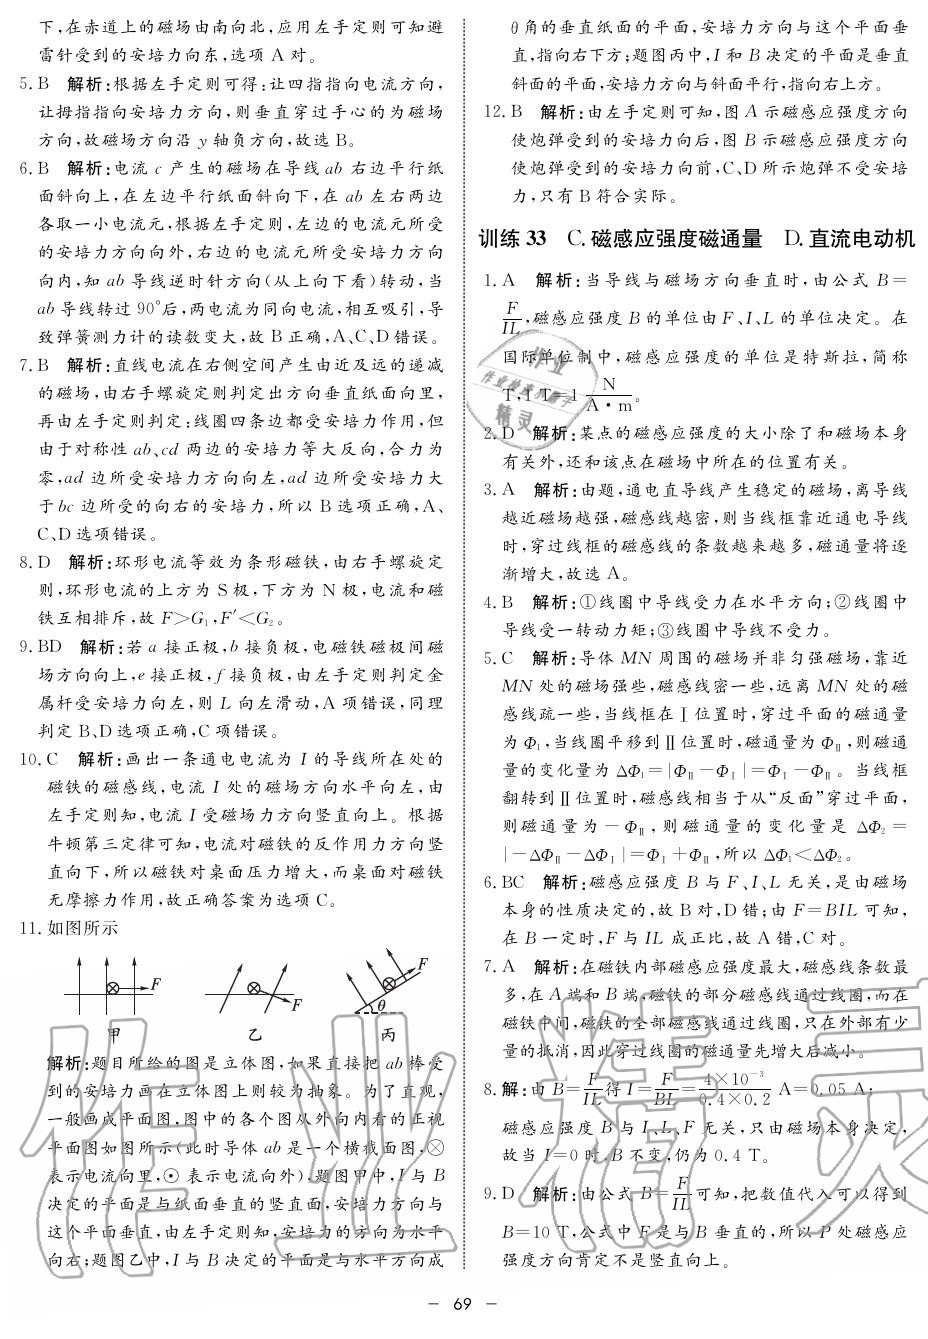 下,在赤道上的磁场由南向北,应用左手定则可知避
雷针受到的安培力向东,选项 A 对。
5. B 解析:根据左手定则可得:让四指指向电流方向,
让拇指指向安培力方向,则垂直穿过手心的为磁场
方向,故磁场方向沿 y 轴负方向,故选 B。
6. B 解析:电流 c 产生的磁场在导线 ab 右边平行纸
面斜向上,在左边平行纸面斜向下,在 ab 左右两边
各取一小电流元,根据左手定则,左边的电流元所受
的安培力方向向外,右边的电流元所受安培力方向
向内,知 ab 导线逆时针方向(从上向下看)转动,当
ab 导线转过 90°后,两电流为同向电流,相互吸引,导
致弹簧测力计的读数变大,故 B 正确,A、C、D 错误。
7. B 解析:直线电流在右侧空间产生由近及远的递减
的磁场,由右手螺旋定则判定出方向垂直纸面向里,
再由左手定则判定:线圈四条边都受安培力作用,但
由于对称性 ab、cd 两边的安培力等大反向,合力为
零,ad 边所受安培力方向向左,ad 边所受安培力大
于 bc 边所受的向右的安培力,所以 B 选项正确,A、
C、D 选项错误。
8. D 解析:环形电流等效为条形磁铁,由右手螺旋定
则,环形电流的上方为 S 极,下方为 N 极,电流和磁
铁互相排斥,故 F>G₁,F′<G₂。
9. BD 解析:若 a 接正极,b 接负极,电磁铁磁极间磁
场方向向上,e 接正极,f 接负极,由左手定则判定金
属杆受安培力向左,则 L 向左滑动,A 项错误,同理
判定 B、D 选项正确,C 项错误。
10. C 解析:画出一条通电电流为 I 的导线所在处的
磁铁的磁感线,电流 I 处的磁场方向水平向左,由
左手定则知,电流 I 受磁场力方向竖直向上。根据
牛顿第三定律可知,电流对磁铁的反作用力方向竖
直向下,所以磁铁对桌面压力增大,而桌面对磁铁
无摩擦力作用,故正确答案为选项 C。
11. 如图所示
F F F θ
甲 乙 丙
解析:题目所给的图是立体图,如果直接把 ab 棒受
到的安培力画在立体图上则较为抽象。为了直观,
一般画成平面图,图中的各个图从外向内看的正视
平面图如图所示(此时导体 ab 是一个横截面图,⊗
表示电流向里,⊙ 表示电流向外),题图甲中,I 与 B
决定的平面是与纸面垂直的竖直面,安培力方向与
这个平面垂直,由左手定则知,安培力的方向为水平
向右;题图乙中,I 与 B 决定的平面是与水平方向成
θ 角的垂直纸面的平面,安培力方向与这个平面垂
直,指向右下方;题图丙中,I 和 B 决定的平面是垂直
斜面的平面,安培力方向与斜面平行,指向右上方。
12. B 解析:由左手定则可知,图 A 示磁感应强度方向
使炮弹受到的安培力向后,图 B 示磁感应强度方向
使炮弹受到的安培力向前,C、D 所示炮弹不受安培
力,只有 B 符合实际。
训练 33 C. 磁感应强度磁通量 D. 直流电动机
1. A 解析:当导线与磁场方向垂直时,由公式 B=
F/IL,磁感应强度 B 的单位由 F、I、L 的单位决定。在
国际单位制中,磁感应强度的单位是特斯拉,简称
T,1 T=1 N/A·m。
2. D 解析:某点的磁感应强度的大小除了和磁场本身
有关外,还和该点在磁场中所在的位置有关。
3. A 解析:由题,通电直导线产生稳定的磁场,离导线
越近磁场越强,磁感线越密,则当线框靠近通电导线
时,穿过线框的磁感线的条数越来越多,磁通量将逐
渐增大,故选 A。
4. B 解析:①线圈中导线受力在水平方向;②线圈中
导线受一转动力矩;③线圈中导线不受力。
5. C 解析:导体 MN 周围的磁场并非匀强磁场,靠近
MN 处的磁场强些,磁感线密一些,远离 MN 处的磁
感线疏一些,当线框在Ⅰ位置时,穿过平面的磁通量
为 Φ₁,当线圈平移到Ⅱ位置时,磁通量为 ΦⅡ,则磁通
量的变化量为 ΔΦ₁=|ΦⅡ-ΦⅠ|=ΦⅠ-ΦⅡ。当线框
翻转到Ⅱ位置时,磁感线相当于从“反面”穿过平面,
则磁通量为-ΦⅡ,则磁通量的变化量是 ΔΦ₂=
|-ΔΦⅡ-ΔΦⅠ|=ΦⅠ+ΦⅡ,所以 ΔΦ₁<ΔΦ₂。
6. BC 解析:磁感应强度 B 与 F、I、L 无关,是由磁场
本身的性质决定的,故 B 对,D 错;由 F=BIL 可知,
在 B 一定时,F 与 IL 成正比,故 A 错,C 对。
7. A 解析:在磁铁内部磁感应强度最大,磁感线条数最
多,在 A 端和 B 端,磁铁的部分磁感线通过线圈,而在
磁铁中间,磁铁的全部磁感线通过线圈,只在外部有少
量的抵消,因此穿过线圈的磁通量先增大后减小。
8. 解:由 B=F/IL得 I=F/BL=4×10⁻³/0.4×0.2 A=0.05 A;
磁感应强度 B 与 I、L、F 无关,只由磁场本身决定,
故当 I=0 时,B 不变,仍为 0.4 T。
9. D 解析:由公式 B=F/IL可知,把数值代入可以得到
B=10 T,公式中 F 是与 B 垂直的,所以 P 处磁感应
强度方向肯定不是竖直向上。
— 69 —
作业精灵